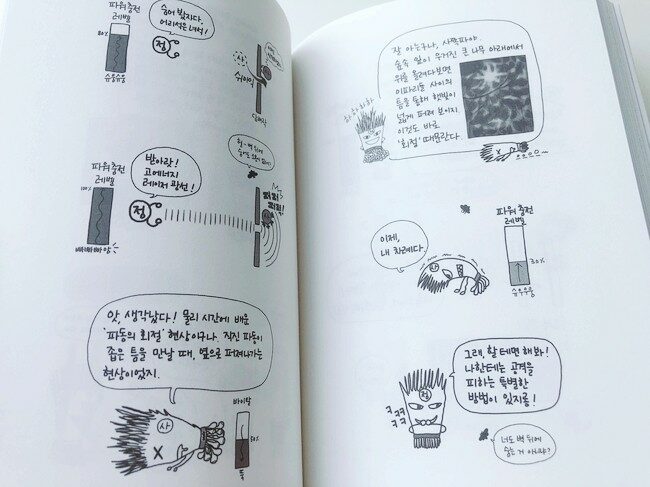 파워충전
레벨
80%
슈융슈융
숨어 봤자다.
어리석은 녀석!
정
사
쉬이익
파워충전
레벨
100%
빠빠빠빠앙
받아랏!
고에너지
레이저 광선!
정
앗, 생각났다! 물리 시간에 배운
'파동의 회절' 현상이구나. 직진 파동이
좁은 틈을 만날 때, 옆으로 퍼져나가는
현상이었지.
사
잘 아는구나, 사짝파야.
숲속 잎이 우거진 큰 나무 아래에서
위를 올려다보면
이파리들 사이의
틈을 통해 햇빛이
넓게 퍼져 보이지.
이것도 바로
'회절' 때문란다.
하하하하
이제,
내 차례다.
파워충전
레벨
30%
슈우우웅
그래, 할 테면 해봐!
나한테는 공격을
피하는 특별한
방법이 있지롱!
정
ㅋㅋㅋㅋ
너도 벽 뒤에
숨는 거 아니냐?